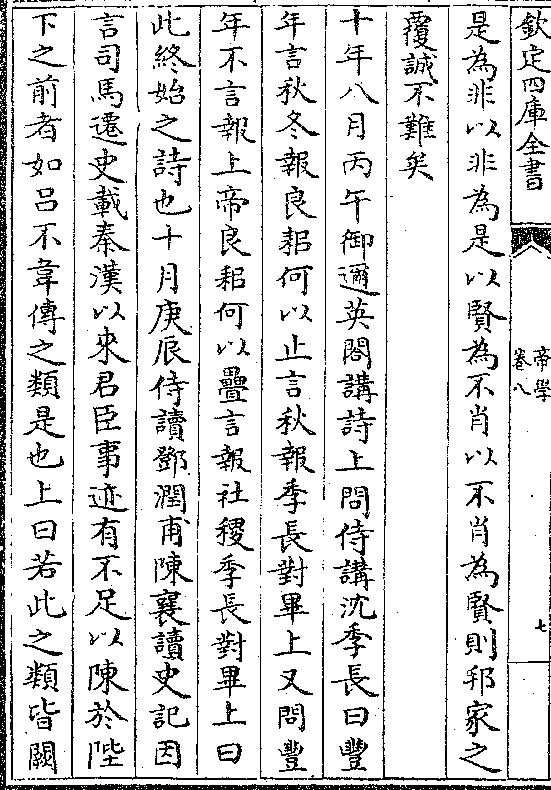 欽定四庫全書
帝學
卷八
七
是為非以非為是以賢為不肖以不肖為賢則邦家之
覆誠不難矣
十年八月丙午御邇英閣講詩上問侍講沈季長曰豐
年言秋冬報良耜何以止言秋報季長對畢上又問豐
年不言報上帝良耜何以疊言報社稷季長對畢上曰
此終始之詩也十月庚辰侍讀鄧潤甫陳襄讀史記因
言司馬遷史載秦漢以來君臣事迹有不足以陳於陛
下之前者如呂不韋傳之類是也上曰若此之類皆闕